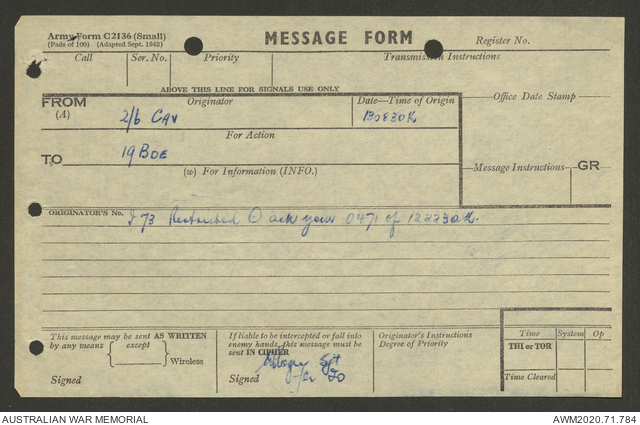 Army Form C2136 (Small)
(Pads of 100) (Adapted Sept. 1943)
MESSAGE FORM
Register No.
Call
Ser. No.
Priority
Transmission Instructions
ABOVE THIS LINE FOR SIGNALS USE ONLY
FROM
(A)
Originator
Date—Time of Origin
Office Date Stamp
2/6 CAV
130830K
For Action
TO
19 BDE
(w) For Information (INFO.)
Message Instructions
GR
ORIGINATOR'S No.
I 73 Restricted O ack your 0471 of 122230K.
This message may be sent AS WRITTEN
by any means
except
Wireless
Signed
If liable to be intercepted or fall into
enemy hands, this message must be
sent IN CIPHER
Sgt
Signed
IO
Originator's Instructions
Degree of Priority
Time
System
Op
THI or TOR
Time Cleared
AUSTRALIAN WAR MEMORIAL
AWM2020.71.784